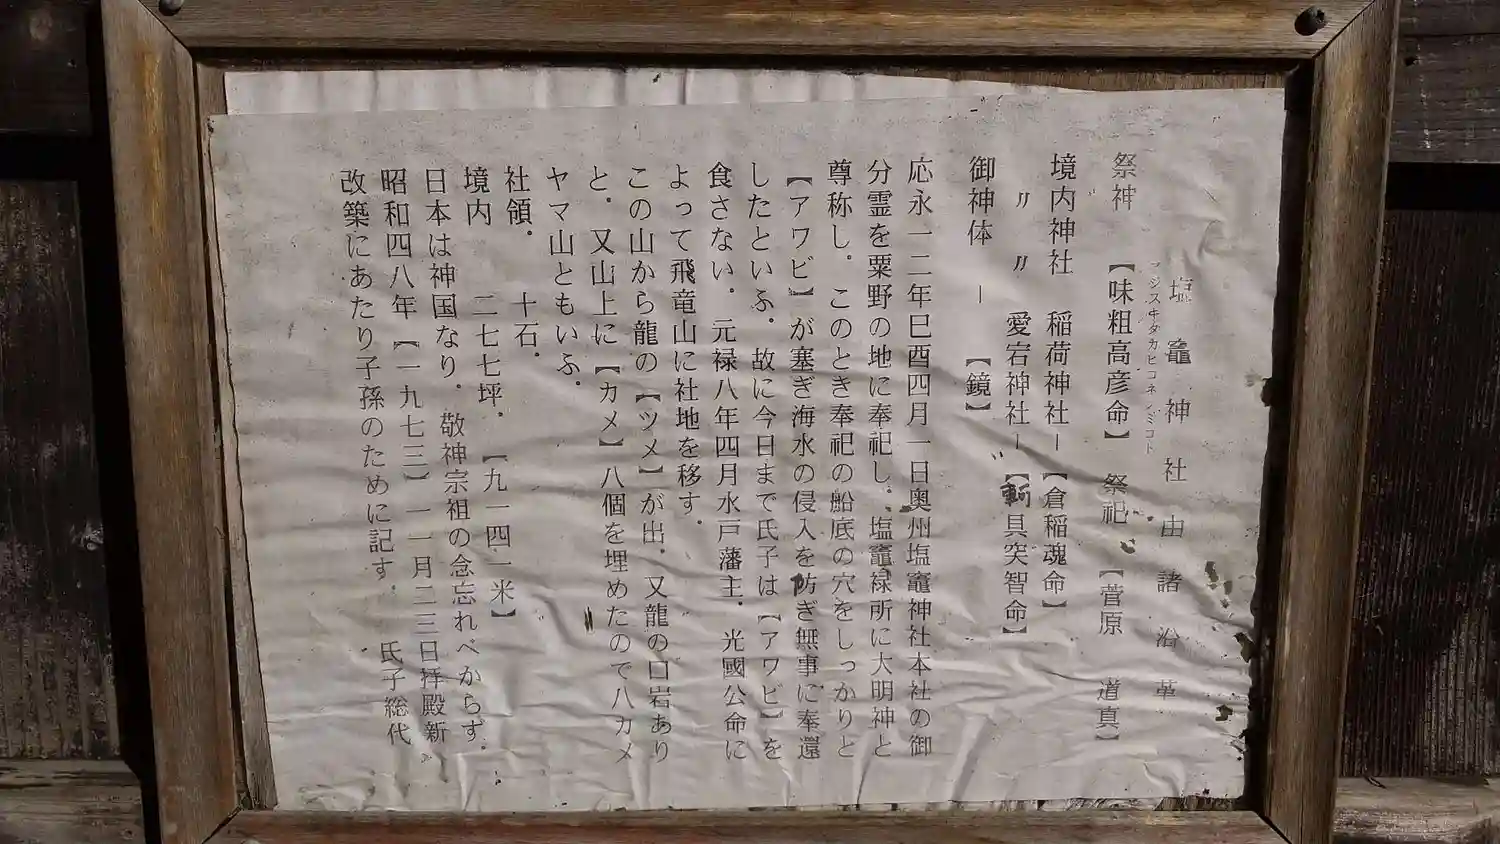 塩竈神社由諸沿革
ジスキタカヒコネノミコト
祭神 【味粗高彦命】 祭祀 【菅原 道真】
境内神社 稲荷神社ー【倉稲魂命】
〃 〃 愛宕神社ー【軻具突智命】
御神体 ー 【鏡】
応永一二年巳酉四月一日奥州塩竈神社本社の御
分霊を粟野の地に奉祀し、塩竈禄所に大明神と
尊称し. このとき奉祀の船底の穴をしっかりと
【アワビ】が塞ぎ海水の侵入を防ぎ無事に奉還
したといふ. 故に今日まで氏子は【アワビ】を
食さない. 元禄八年四月水戸藩主. 光國公命に
よって飛竜山に社地を移す.
この山から龍の【ツメ】が出. 又龍の口岩あり
と. 又山上に【カメ】八個を埋めたので八カメ
ヤマ山ともいふ.
社領. 十石.
境内 二七七坪. 【九一四一米】
日本は神国なり. 敬神宗祖の念忘れべからず.
昭和四八年【一九七三】一一月二三日拝殿新
改築にあたり子孫のために記す. 氏子総代